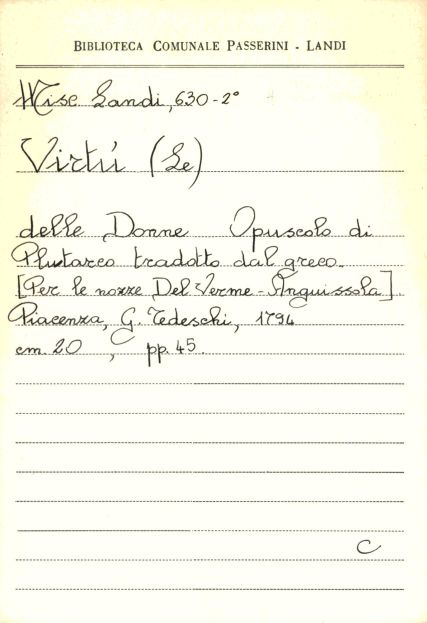 BIBLIOTECA COMUNALE PASSERINI - LANDI
Misc Landi, 630-2°
Virtú (Le)
delle Donne Opuscolo di
Plutarco tradotto dal greco.
[Per le nozze Del Verme - Anguissola].
Piacenza, G. Tedeschi, 1794
cm. 20, pp. 45.
C